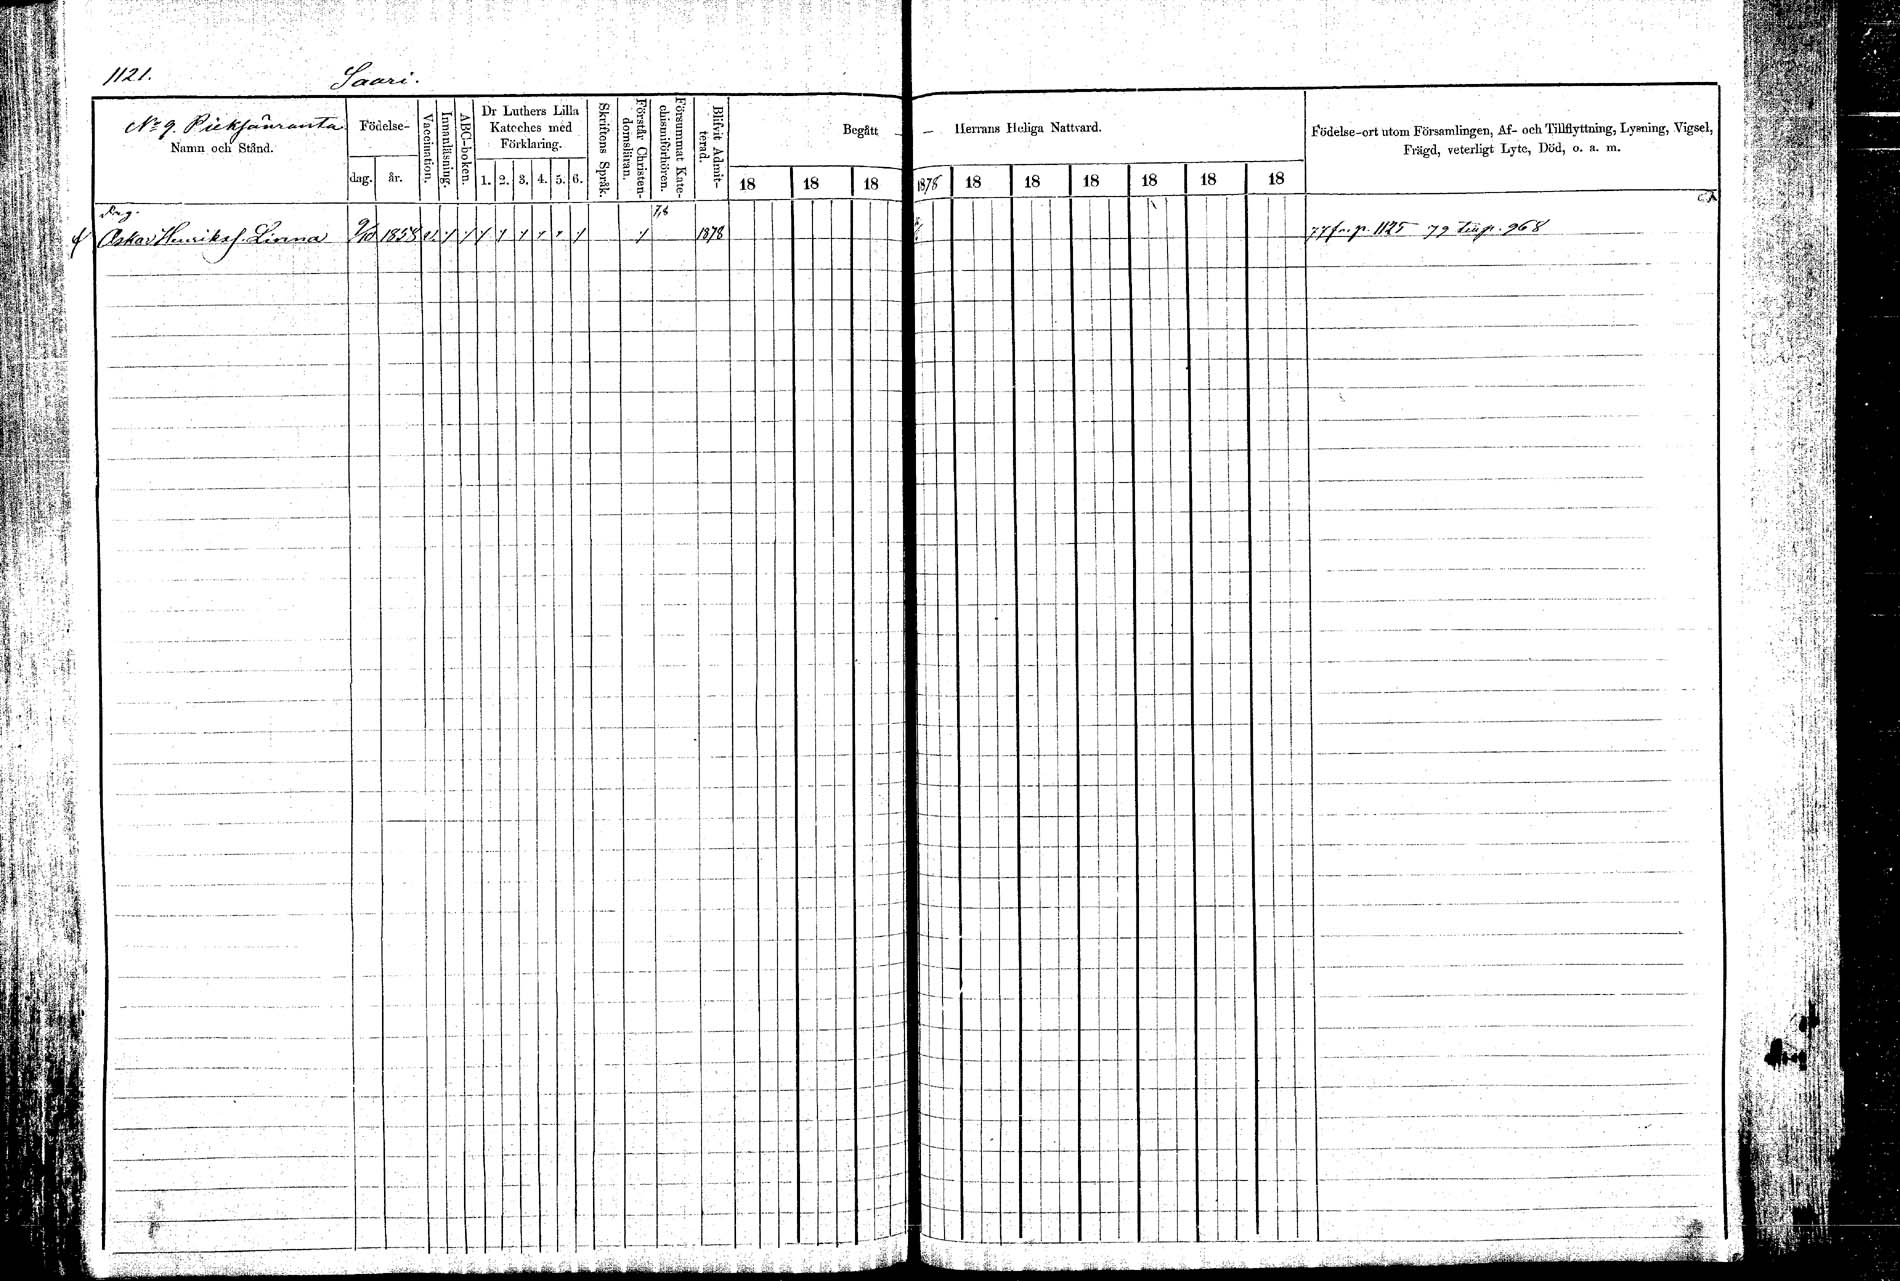 1121.
Saari.
No 9. Piekjänranta
Namn och Stånd.
Födelse-
dag. år.
Vaccination.
Innanläsning.
ABC-boken.
Dr Luthers Lilla
Kateches med
Förklaring.
1. 2. 3. 4. 5. 6.
Skriftens Språk.
Förstår Christen-
domsläran.
Försummat Kate-
chismiförhören.
Blifvit Admit-
terad.
Begått — — Herrans Heliga Nattvard.
18 18 18 1878 18 18 18 18 18 18
Födelse-ort utom Församlingen, Af- och Tillflyttning, Lysning, Vigsel,
Frägd, veterligt Lyte, Död, o. a. m.
Drg.
7,8
Oskar Henrikss. Linna 9/10 1858 1878 77 fr. p. 1125 79 till p. 968